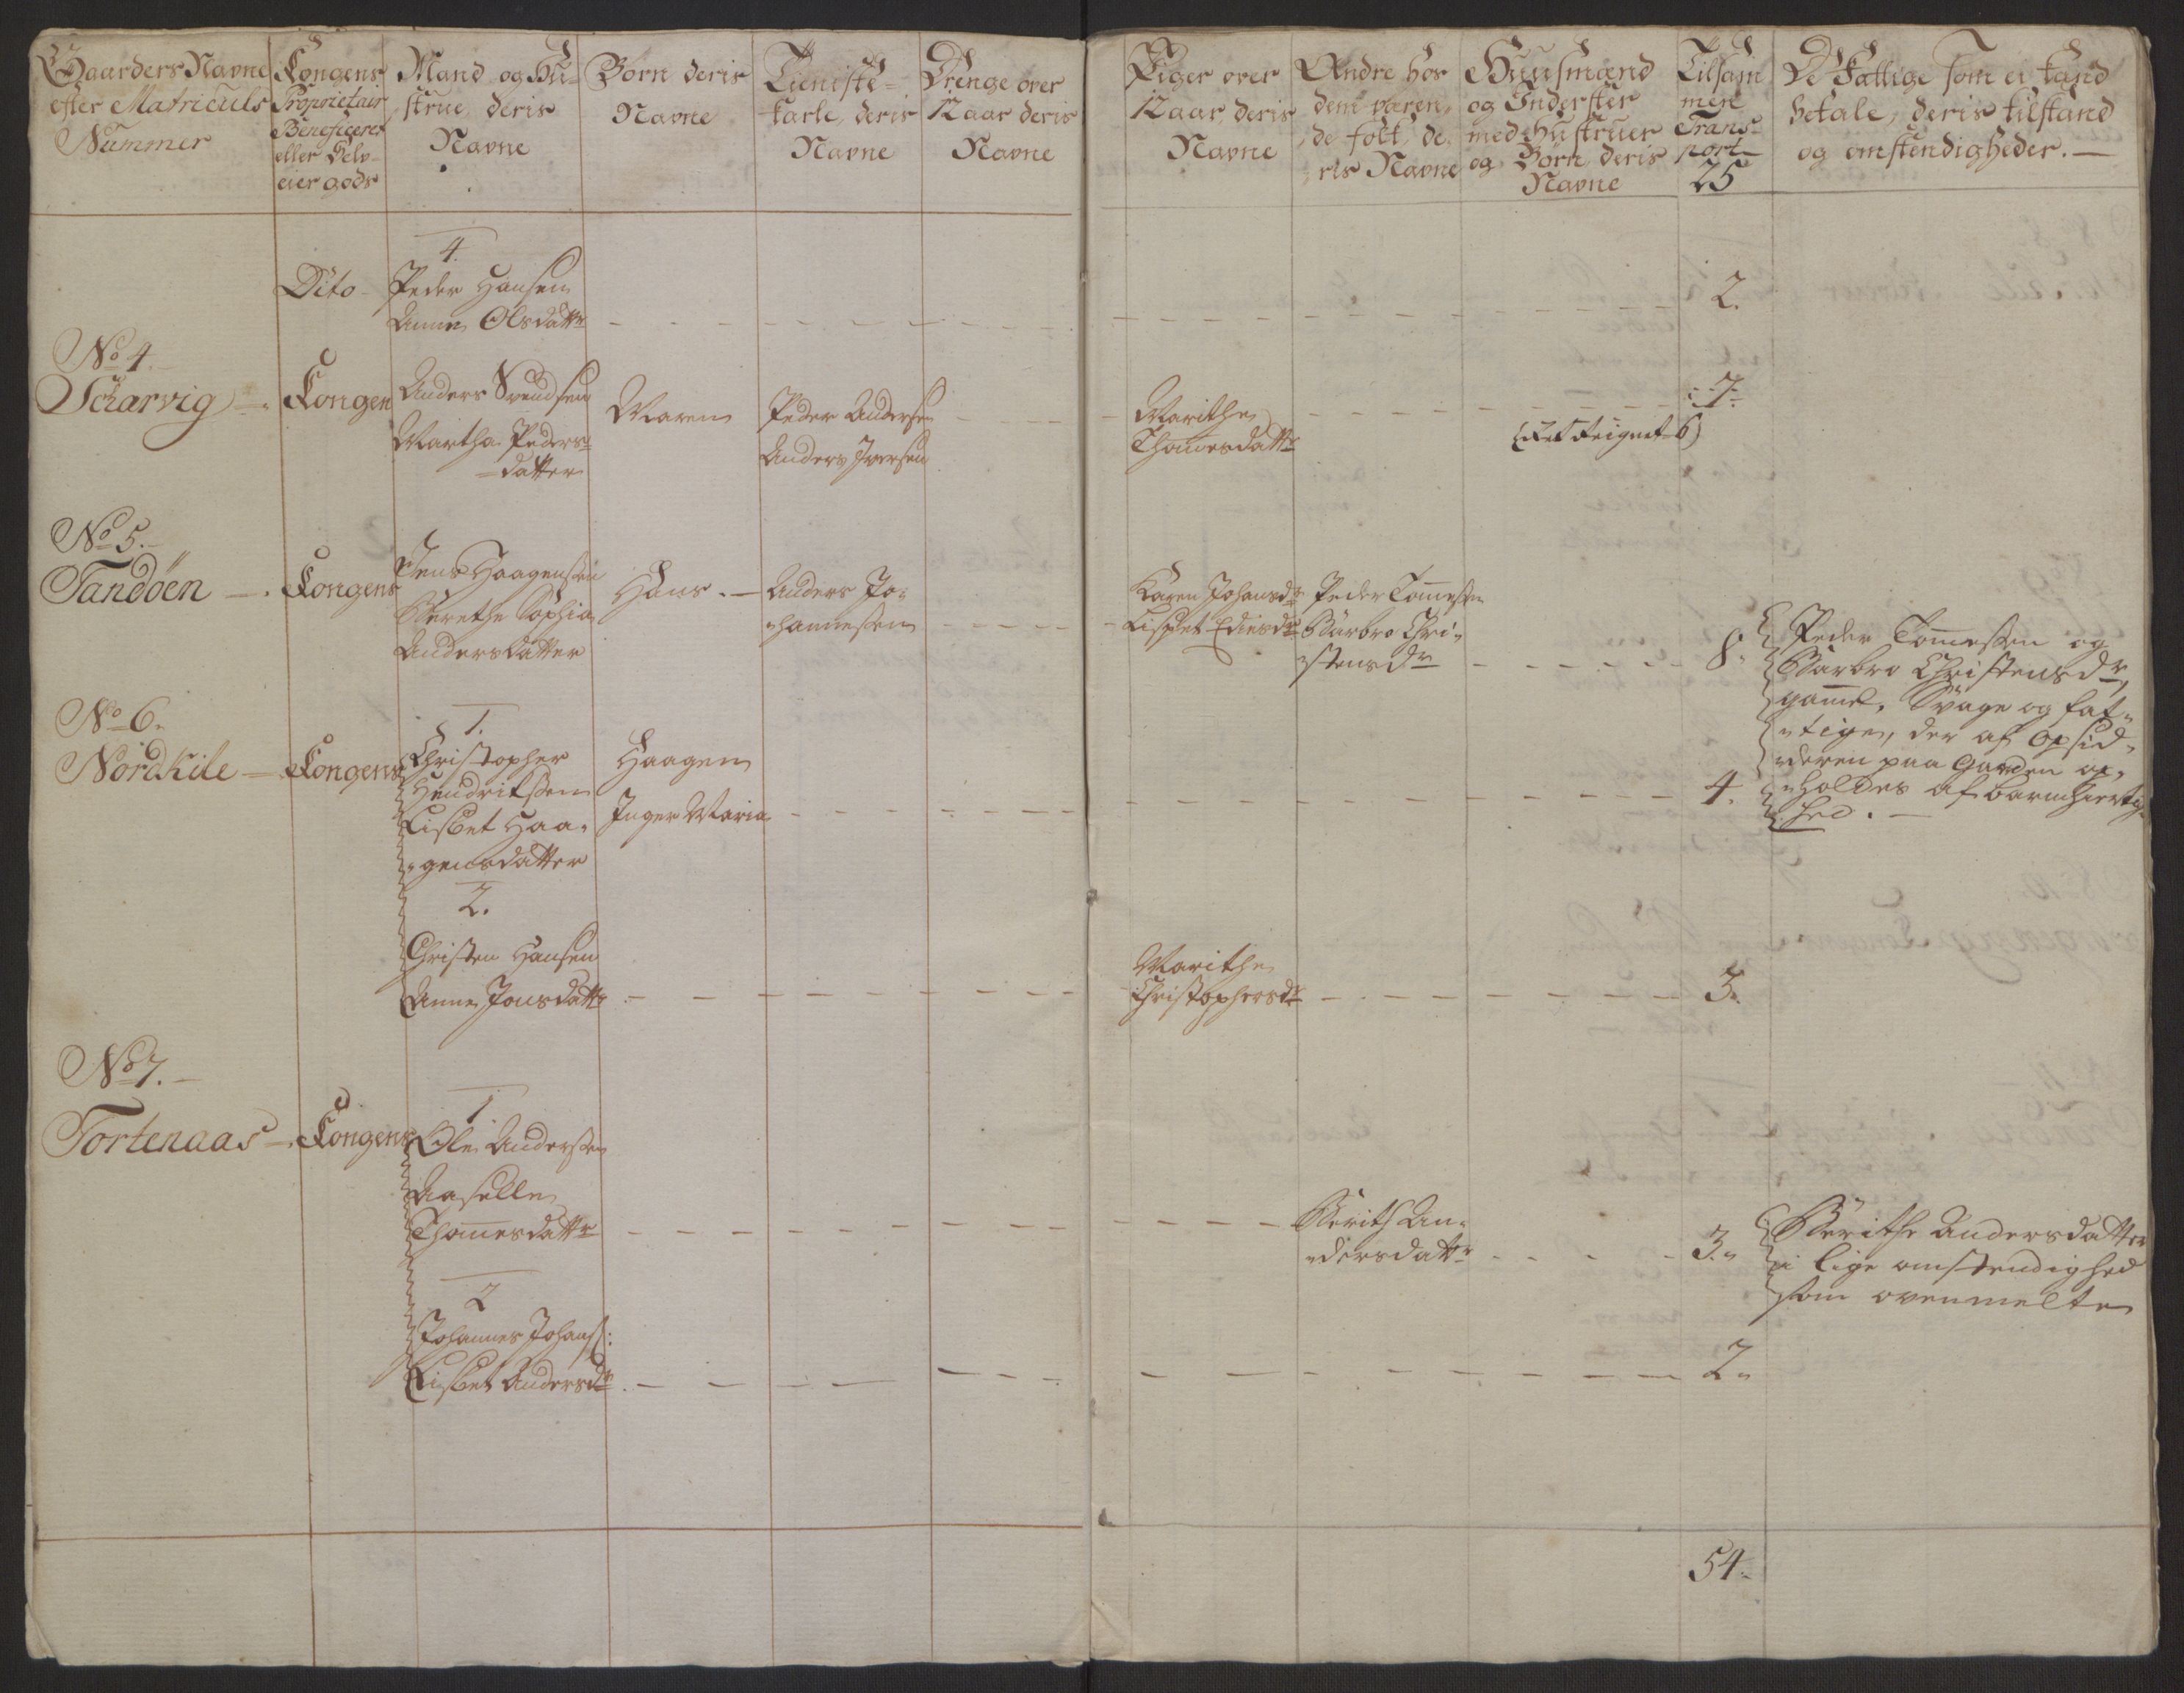 Gaarders Navne
efter Matriculs
Nummer
Kongens
Proprietair
Beneficeret
eller Selv-
eier gods
Mand og Hu-
strue, deris
Navne
Børn deris
Navne
Tieniste-
karle, deris
Navne
Drenge over
12 aar deris
Navne
Piger over
12 aar, deris
Navne
Andre hos
dem væren-
de folk, de-
ris Navne
Huusmænd
og Inderster
med Hustruer
og Børn deris
Navne
Tilsam
men
Trans-
port
25
De Fattige som ei kand
betale, deris tilstand
og omstendigheder. —
4.
Dito - Peder Hansen
Anne Olsdattr - - - - 2.
No 4.
Scharvig - Kongen
Anders Svendsen
Martha Peders-
datter
Maren
Peder Andersen
Anders Iversen
Marithe
Thomesdattr
7.
6)
No 5.
Tandöen - Kongens
Jens Haagensen
Berethe Sophia
Andersdatter
Hans. -
Anders Jo-
hannessen
Karen Johansdr
Lisbet Ediesdr
Peder Tomessen
Barbro Chri-
stensdr
8.
Peder Tomessen og
Barbro Christensdr,
gamel, Svage og fat-
tige, der af Opsid-
deren paa Garden op-
holdes af barmhiertig-
hed. —
No 6.
Nordkile - Kongens
1.
Christopher
Hendrichsen
Lisbet Haa-
gensdatter
Haagen
Inger Maria
4.
2.
Christen Hansen
Anne Jonsdattr
Marithe
Christophersdr
3.
No 7.
Tortenaas - Kongens
1.
Ole Andersen
Aaselle
Thomesdattr
Berith An-
dersdattr
3.
Berithe Andersdatter
i lige omstendighed
som ovenmelte
2
Johannes Johans:
Lisbet Andersdr
2.
54.